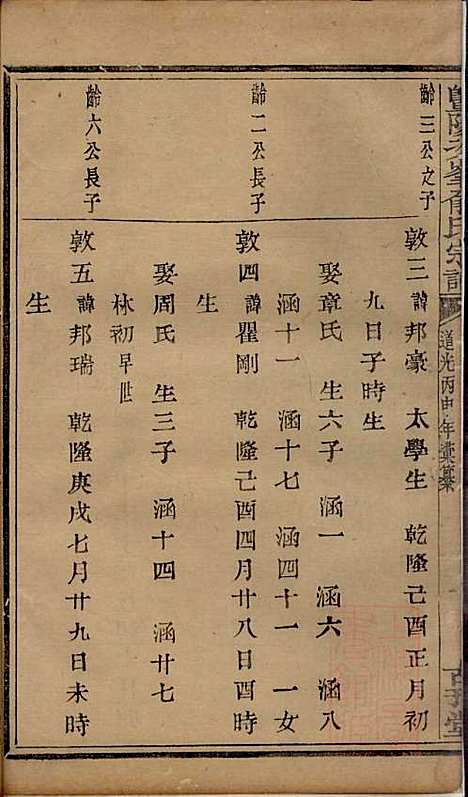 暨陽 峯俞氏宗譜
道光丙申年彙纂
齡三公之子
敦三 諱邦豪 太學生 乾隆己酉正月初
九日子時生
娶章氏 生六子 涵一 涵六 涵八
涵十一 涵十七 涵四十一 一女
齡二公長子
敦四 諱瞿剛 乾隆己酉四月廿八日酉時
生
娶周氏 生三子 涵十四 涵廿七
林初早世
齡六公長子
敦五 諱邦瑞 乾隆庚戌七月廿九日未時
生